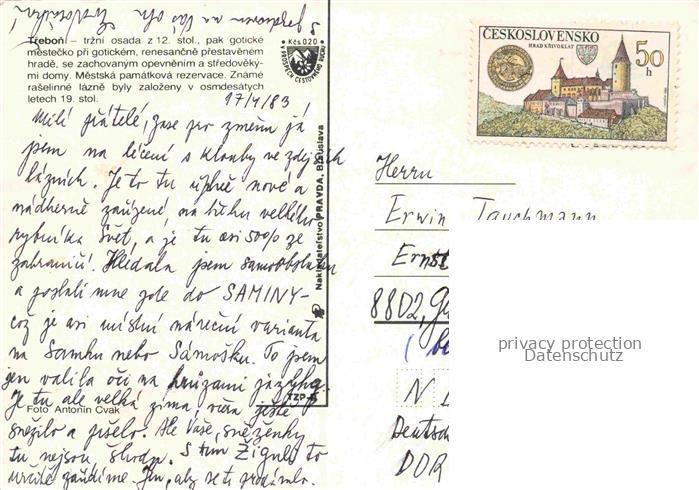 Třeboň – tržní osada z 12. stol., pak gotické
městečko při gotickém, renesančně přestavěném
hradě, se zachovaným opevněním a středověký-
mi domy. Městská památková rezervace. Známé
rašelinné lázně byly založeny v osmdesátých
letech 19. stol.
Kčs 0,20
17/4/83
Milí přátelé, zase pro změnu já
jsem na léčení s klouby ve zdejších
lázních. Je to tu úplně nové a
nádherně zařízené, na břehu velkého
rybníka Svět, a je tu asi 50% ze
zahraničí. Hledala jsem samoobsluhu
a poslali mne zde do SAMINY-
což je asi místní nářeční varianta
na Samku nebo Sámošku. To jsem
jen valila oči na
Je tu ale velká zima, včera ještě
sněžilo a pršelo. Ale Vaše sněženky
tu nejsou S tím Žigulu to
určitě
Foto Antonín Cvak
Nakladatelstvo PRAVDA, Bratislava
TZP-
ČESKOSLOVENSKO
HRAD KŘIVOKLÁT
50
h
Herrn
Erwin Tauchmann
Ernst
8802,
N
Deutsch
DDR
privacy protection
Datenschutz